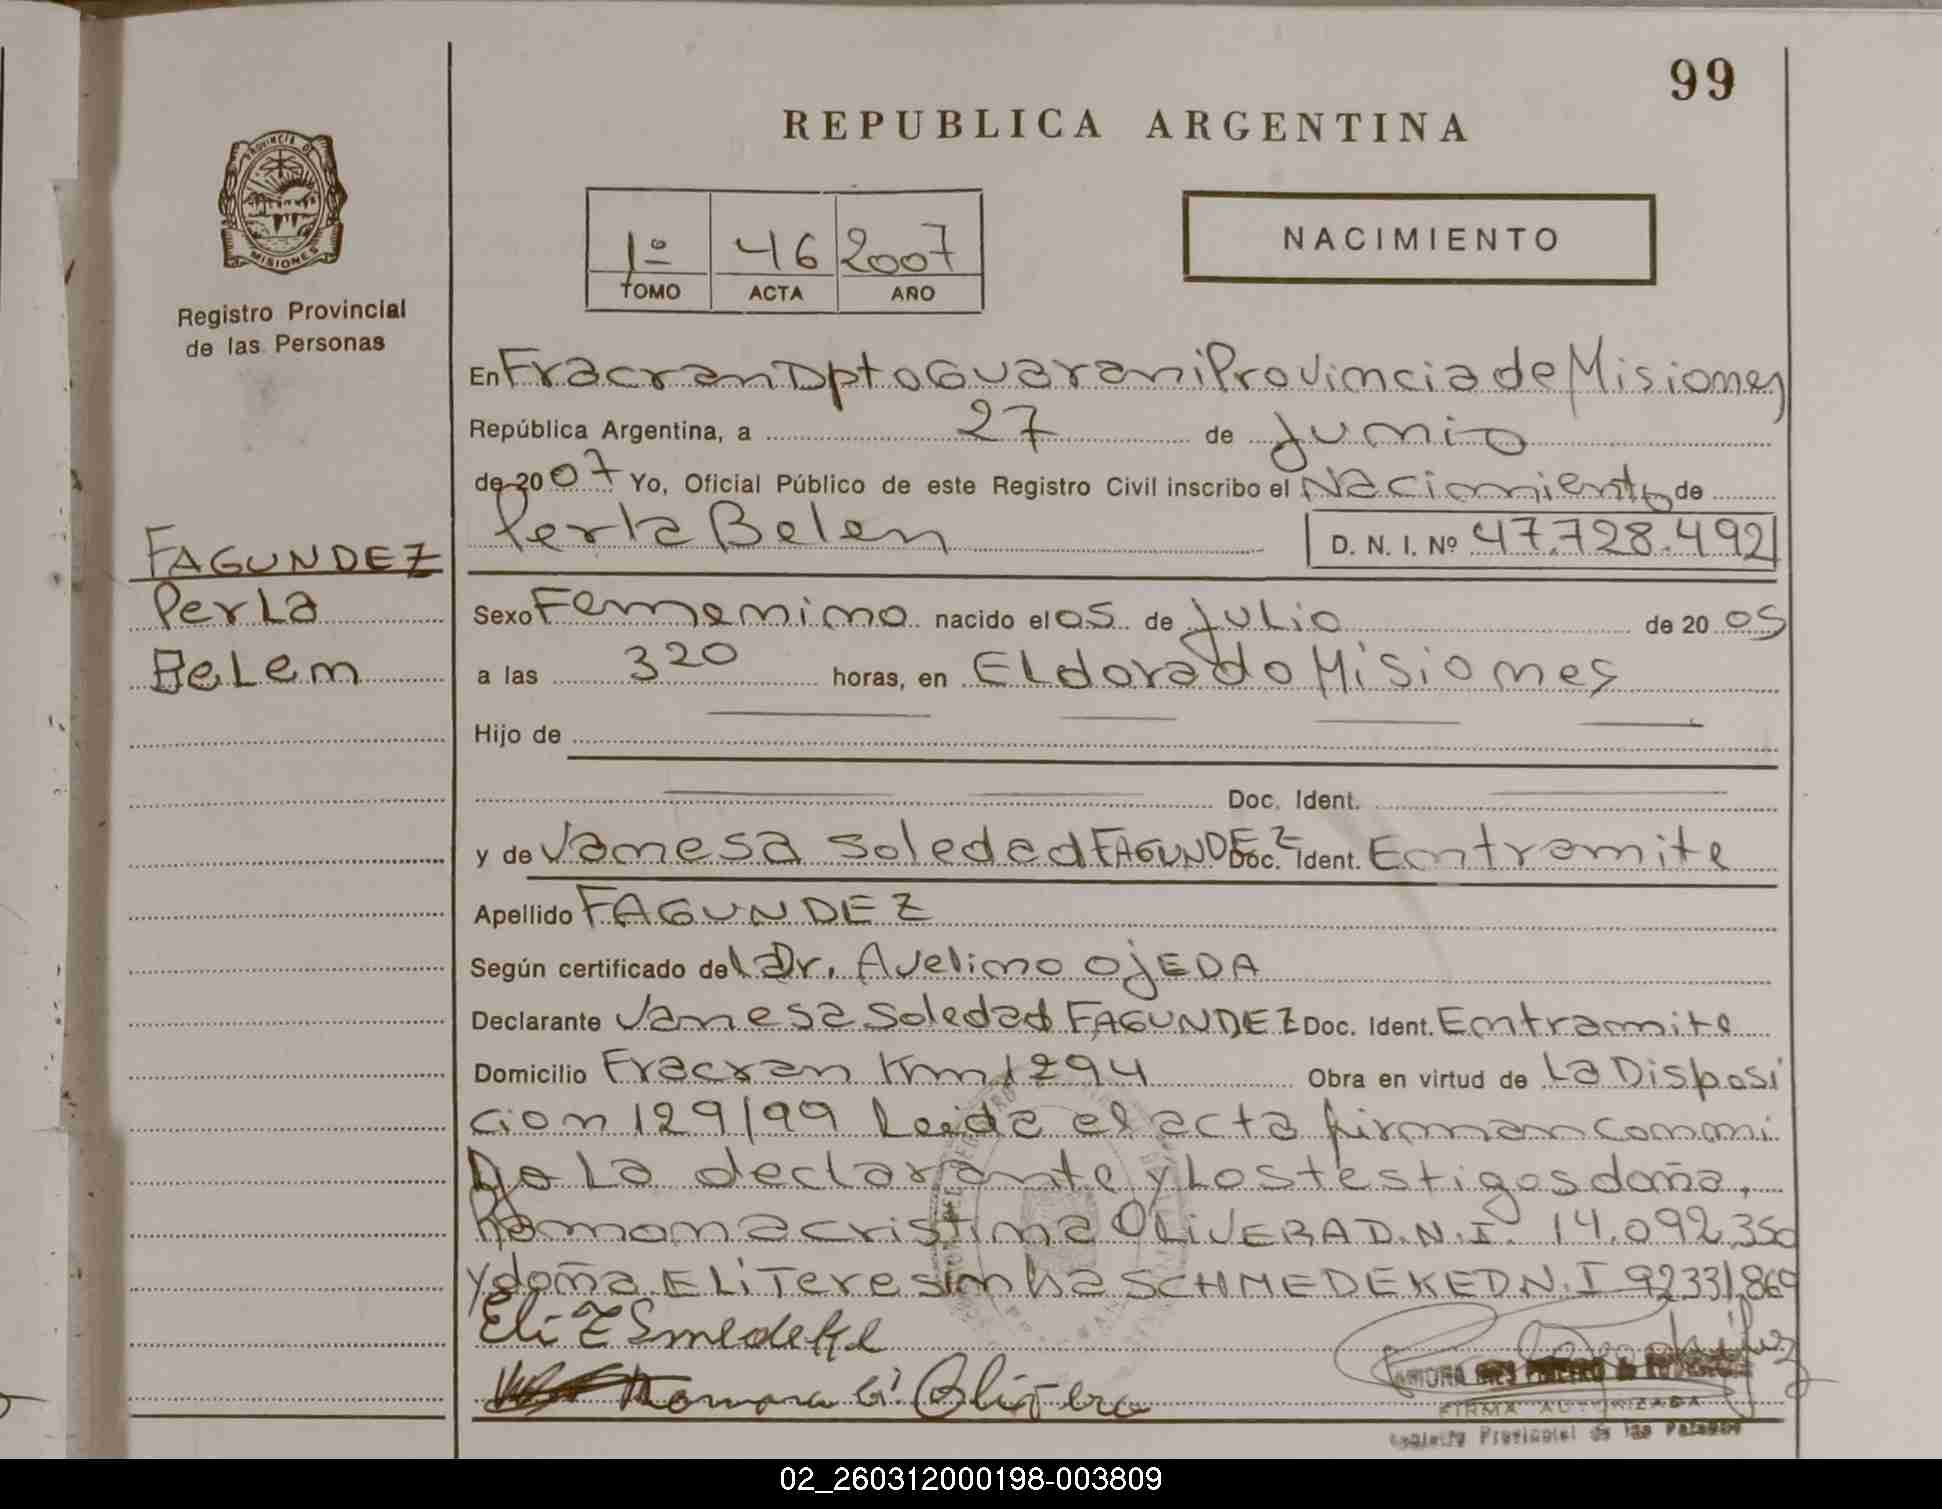 99
REPUBLICA ARGENTINA
PROVINCIA DE
MISIONES
Registro Provincial
de las Personas
1º 46 2007
TOMO ACTA AÑO
NACIMIENTO
En Fracran Dpto Guarani Provincia de Misiones
República Argentina, a 27 de Junio
de 2007 Yo, Oficial Público de este Registro Civil inscribo el Nacimiento de
Perla Belen D. N. I. Nº 47.728.492
FAGUNDEZ
Perla
Belem
Sexo Femenino nacido el 05 de Julio de 2005
a las 320 horas, en Eldorado Misiones
Hijo de
Doc. Ident.
y de Vanesa Soledad FAGUNDEZ Doc. Ident. Entramite
Apellido FAGUNDEZ
Según certificado del Dr. Avelino OJEDA
Declarante Vanesa Soledad FAGUNDEZ Doc. Ident. Entramite
Domicilio Fracran Km 1294 Obra en virtud de La Disposi
cion 129/99 Leida el acta firman conmi
go La declarante y Los testigos doña,
Ramona cristina OLIVERA D.N.I. 14.092.350
y doña ELi Teresinha SCHMEDEKE D.N.I 92331,869
Eli T Smedeke
Ramona C. Olivera
FIRMA AUTORIZADA
Registro Provincial de las Personas
02_260312000198-003809